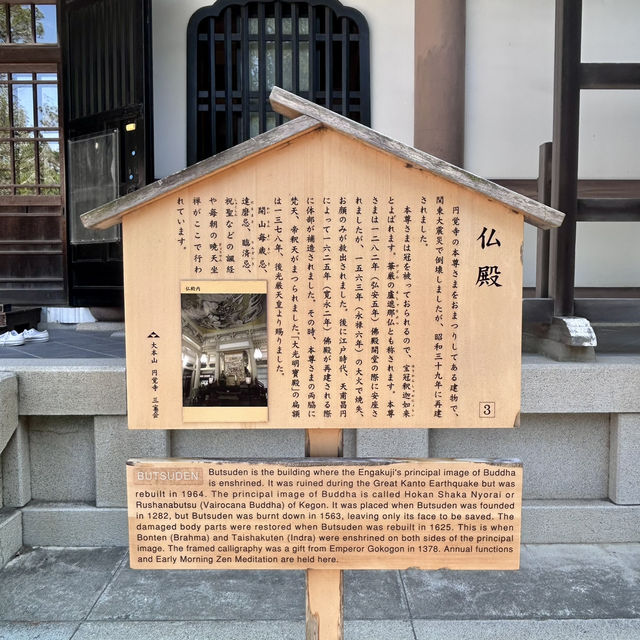 仏殿
円覚寺の本尊さまをおまつりしてある建物で、
関東大震災で倒壊しましたが、昭和三十九年に再建
されました。
本尊さまは冠を被っておられるので、宝冠釈迦如来
とよばれます。華厳の盧遮那仏とも称されます。本尊
さまは一二八二年（弘安五年）仏殿開堂の際に安座さ
れましたが、一五六三年（永禄六年）の大火で焼失、
お顔のみが救出されました。後に江戸時代、天甫昌円
によって一六二五年（寛永二年）仏殿が再建される際
に体部が補造されました。その時、本尊さまの両脇に
梵天、帝釈天がまつられました。「大光明寶殿」の扁額
は一三七八年、後光厳天皇より賜りました。
開山毎歳忌、
達磨忌、臨済忌、
祝聖などの諷経
や毎朝の暁天坐
禅がここで行わ
れています。
仏殿内
大本山 円覚寺 三蓋会
3
BUTSUDEN Butsuden is the building where the Engakuji's principal image of Buddha
is enshrined. It was ruined during the Great Kanto Earthquake but was
rebuilt in 1964. The principal image of Buddha is called Hokan Shaka Nyorai or
Rushanabutsu (Vairocana Buddha) of Kegon. It was placed when Butsuden was founded
in 1282, but Butsuden was burnt down in 1563, leaving only its face to be saved. The
damaged body parts were restored when Butsuden was rebuilt in 1625. This is when
Bonten (Brahma) and Taishakuten (Indra) were enshrined on both sides of the principal
image. The framed calligraphy was a gift from Emperor Gokogon in 1378. Annual functions
and Early Morning Zen Meditation are held here.